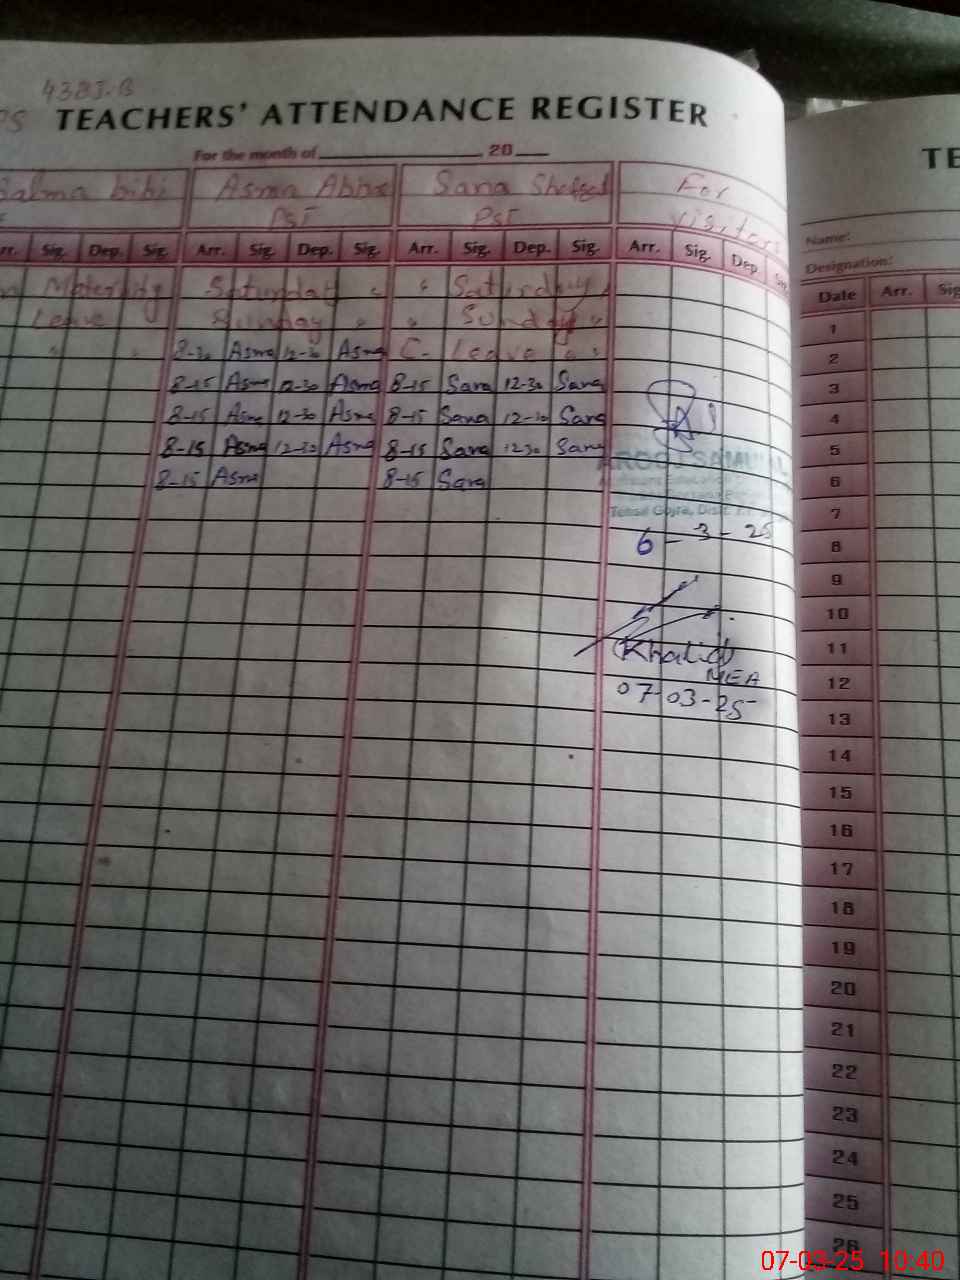 43BJ.B
PS TEACHERS' ATTENDANCE REGISTER
For the month of 20
Salma bibi Asma Abbas Sana Shafqat For
PST PST Visitors
Arr. Sig. Dep. Sig. Arr. Sig. Dep. Sig. Arr. Sig. Dep. Sig. Arr. Sig. Dep.
Maternity Saturday " " Saturday
Leave Sunday " " Sunday "
" " 8-30 Asma 12-30 Asma C- Leave " "
8-15 Asma 12-30 Asma 8-15 Sana 12-30 Sana
8-15 Asma 12-30 Asma 8-15 Sana 12-30 Sana
8-15 Asma 12-30 Asma 8-15 Sana 12-30 Sana
8-15 Asma 8-15 Sana
AROOJ SAMUAL
Tehsil Gojra, Distt. T.T.
6-3-25
Khalid
MEA
07-03-25
TE
Name:
Designation:
Date Arr. Sig
1
2
3
4
5
6
7
8
9
10
11
12
13
14
15
16
17
18
19
20
21
22
23
24
25
26
07-03-25 10:40